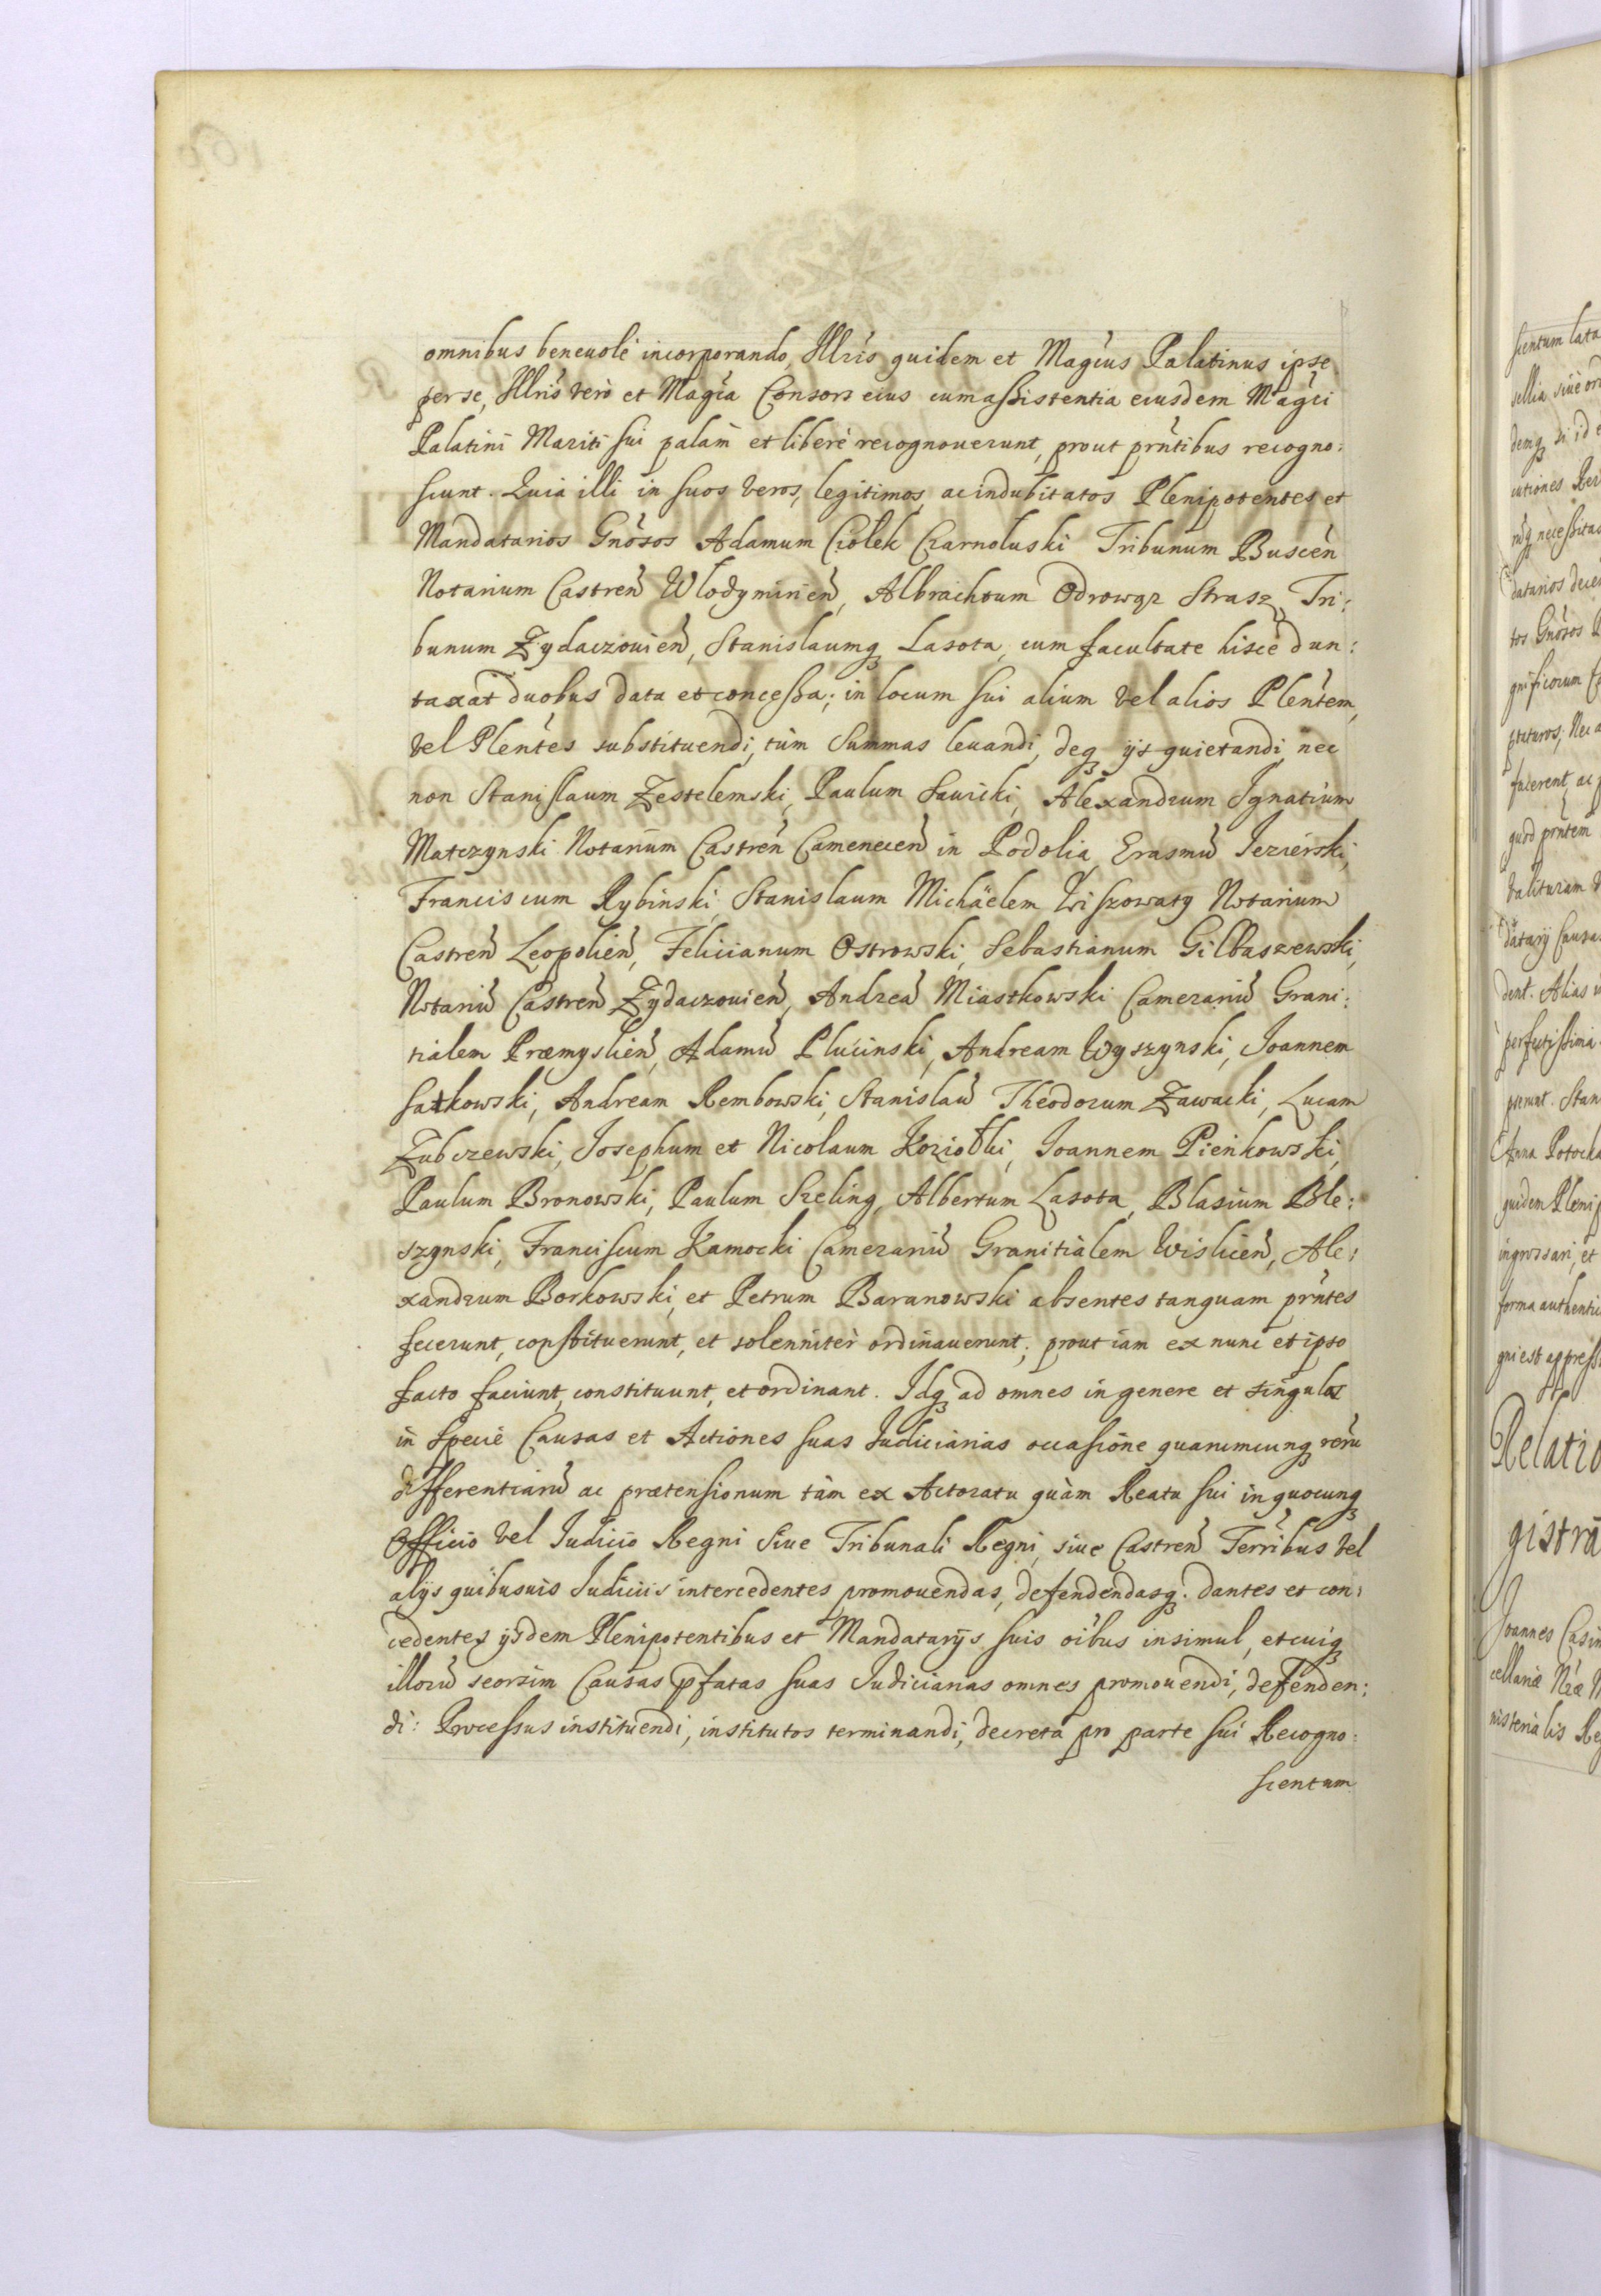 omnibus beneuolè incorporando, Illris quidem et Magcus Palatinus ipse
per se, Illris verò et Magca Consors eius cum assistentia eiusdem Magci
Palatini Mariti sui palam et liberè recognouerunt, prout prntibus recogno:
scunt. Quia illi in suos veros, legitimos, ac indubitatos Plenipotentes et
Mandatarios Gnosos Adamum Ciołek Czarnoluski Tribunum Buscen
Notarium Castren Wlodymirien, Albrachtum Odrowąz Strasz, Tri:
bunum Zydaczouien, Stanislaumq Lasota, cum facultate hisce dun:
taxat duobus data et concessa; in locum sui alium vel alios Plentem,
vel Plentes substituendi, tùm Summas leuandi, deq ijs quietandi, nec
non Stanislaum Zestelemski, Paulum Sawicki, Alexandrum Ignatium
Matczynski Notarium Castren Camenecen in Podolia, Erasmu Iezierski,
Franciscum Rybinski, Stanislaum Michäelem Wiszowaty Notarium
Castren Leopolien, Felicianum Ostrowski, Sebastianum Gilbaszewski,
Notariu Castren Zydaczouien, Andrea Miastkowski Camerariu Grani:
tialem Præmyslien, Adamu Plucinski, Andream Wyszynski, Joannem
Satkowski, Andream Rembowski, Stanislau Theodorum Zawacki, Lucam
Zubczewski, Josephum et Nicolaum Koziołki, Joannem Pieńkowski,
Paulum Bronowski, Paulum Szeling, Albertum Lasota, Blasium Ble:
szynski, Franciscum Kamocki Camerariu Granitialem Wislicen, Ale:
xandrum Borkowski, et Petrum Baranowski absentes tanquam prntes
fecerunt, constituerunt, et solenniter ordinauerunt; prout iam ex nunc et ipso
facto faciunt, constituunt, et ordinant. Idq ad omnes in genere et singulas
in specie Causas et Actiones suas Iudiciarias occasione quarumcunq reru
differentiaru ac prætensionum tàm ex Actoratu quàm Reatu sui in quocunq
Officio vel Iudicio Regni Siue Tribunali Regni, siue Castren Terribus vel
alijs quibusuis Iudiciis intercedentes, promouendas, defendendasq. dantes et con:
cedentes ijsdem Plenipotentibus et Mandatarijs suis oibus insimul, et cuiq
illoru seorsim Causas pfatas suas Iudiciarias omnes promouendi, defenden:
di: Processus instituendi, institutos terminandi, decreta pro parte sui Recogno:
scentum
scentum lata
sellia siue
demq si id
cutiones
necessita
datarios
tos Gnosos
gnificorum
pteturos, Nec
facerent, ac
quod prntem
valituram
datarij Causa
dent. Alias
perfectissima
Stan
Anna Potocka
quidem Pleni
ingrossari, et
forma authenti
gni est appress
Relatio
gistra
Joannes Casi
cellariæ Nræ
nisterialis Re